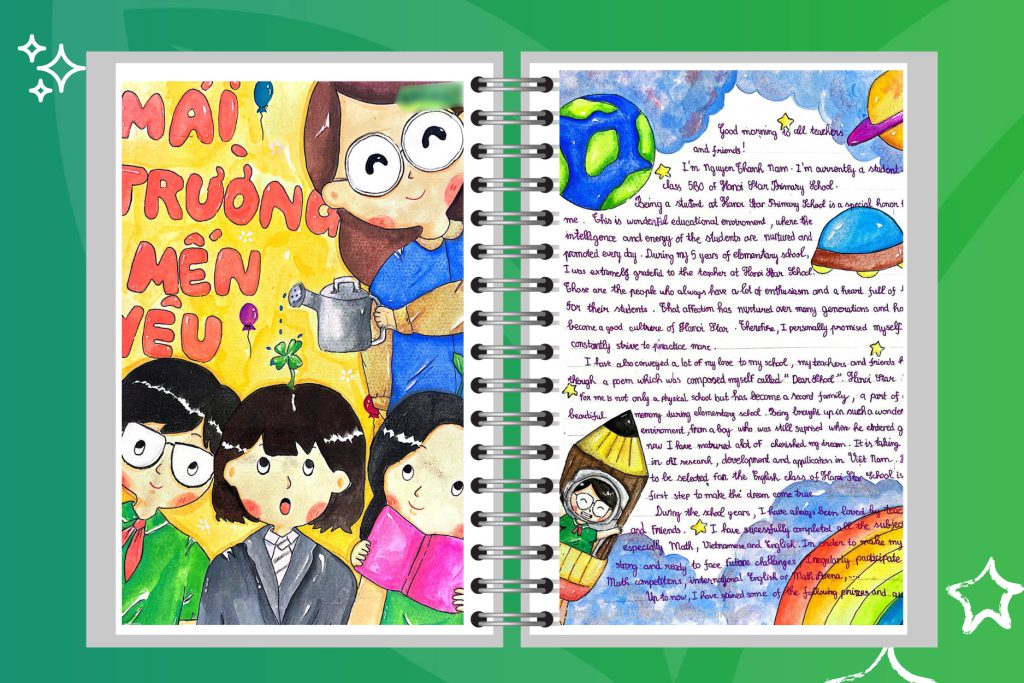 MÁI
TRƯỜNG
MẾN
YÊU
Good morning is all teachers
and friends!
I'm Nguyen Thanh Nam. I'm currently a student
class 5B0 of Hanoi Star Primary School.
Being a student at Hanoi Star Primary School is a special honor
me. This is wonderful educational enviroment, where the
intelligence and energy of the students are nurtured and
promoted every day. During my 5 years of elementary school,
I was extremely grateful to the teacher at Hanoi Star School.
Those are the people who always have a lot of enthusiasm and a heart full of
for their students. That affection has nurtured over many generations and ha
become a good cultrure of Hanoi Star. Therefore, I personally promised myself
constantly strive to practice more.
I have also conveyed a lot of my love to my school, my teachers and friends
though a poem which was composed myself called "Dear School". Hanoi Star
for me is not only a physical school but has become a second family, a part of
beautiful memory during elementary school. Being brought up in such a wonder
enviroment, from a boy who was still suprised when he entered g
now I have matured alot of cherished my dream. It is taking
in AI research, development and application in Việt Nam.
to be selected for the English class of Hanoi Star School is
first step to make the dream come true.
During the school years, I have always been loved by teac
and friends. I have sucessfully completed all the subject
especially Math, Vietnamese and English. In order to make my
strong and ready to face future challenges I regularly participate
Math competitions, international English or Math Arena,....
Up to now, I have gained some of the following prizes and